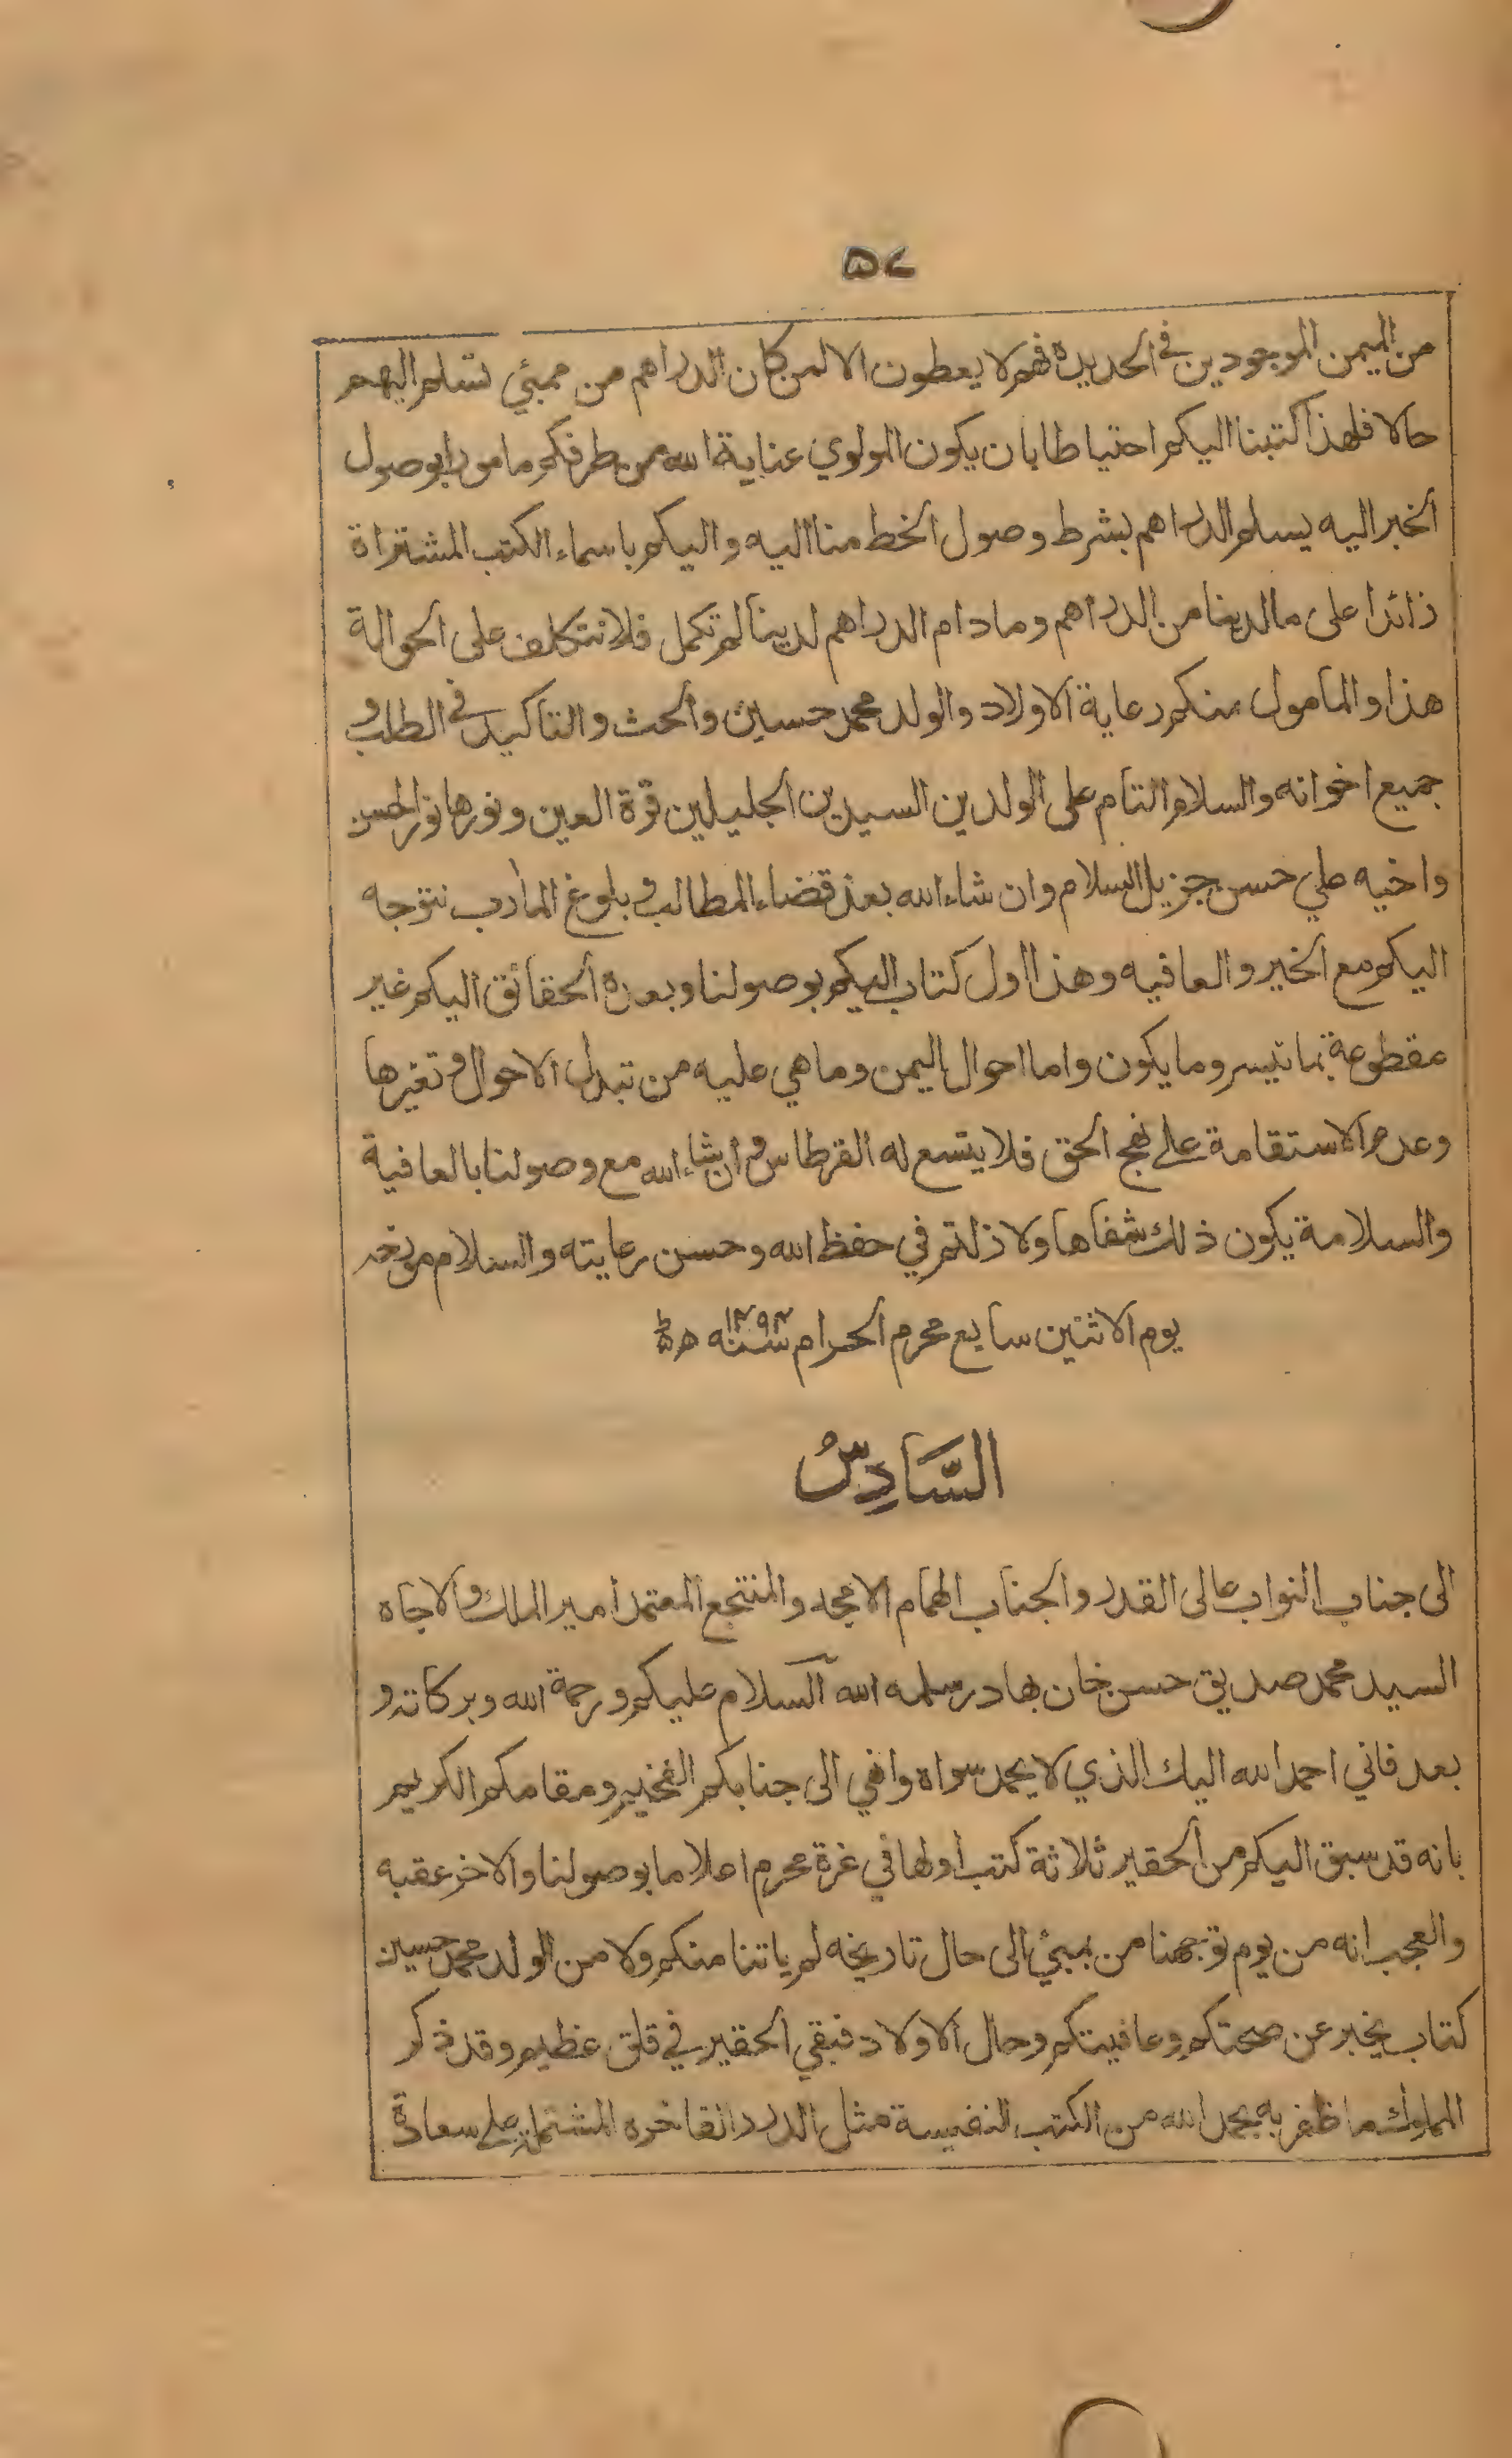 ٥٧
من اليمن الموجودين في الحديدة فهم لا يعطون الا لمن كان الدراهم من ممبئي تسلم اليهم
حالا فلهذا كتبنا اليكم احتياطا بان يكون المولوي عناية الله من طرفكم مامورا بوصول
الخبر اليه يسلم الدراهم بشرط وصول الخط منا اليه واليكم باسماء الكتب المشتراة
زائدا على ما لدينا من الدراهم وما دام الدراهم لدينا لم تكمل فلا نتكلف على الحوالة
هذا والمامول منكم رعاية الاولاد والولد محمد حسين والحث والتاكيد في الطلب و
جميع اخوانه والسلام التام على الولدين السيدين الجليلين قرة العين ونورها نور الحسن
واخيه علي حسن جزيل السلام وان شاء الله بعد قضاء المطالب وبلوغ المآرب نتوجه
اليكم مع الخير والعافيه وهذا اول كتاب اليكم بوصولنا وبعده الحقائق اليكم غير
مقطوعة بما تيسر وما يكون واما احوال اليمن وما هي عليه من تبدل الاحوال وتغيرها
وعدم الاستقامة على نهج الحق فلا يتسع له القرطاس وان شاء الله مع وصولنا بالعافية
والسلامة يكون ذلك شفاها ولا زلتم في حفظ الله وحسن رعايته والسلام مورخه
يوم الاثنين سابع محرم الحرام سنه ١٢٩٣ ه
السَّادِسُ
الى جناب النواب عالى القدر والجناب الهمام الامجد والمنتجع المعتمد أمير الملك والاجاه
السيد محمد صديق حسن خان بهادر سلمه الله آلسلام عليكم ورحمة الله وبركاته و
بعد فاني احمد الله اليك الذي لا يحمد سواه وانهي الى جنابكم الفخيم ومقامكم الكريم
بانه قد سبق اليكم من الحقير ثلاثة كتب أولها في غرة محرم اعلاما بوصولنا والاخر عقبه
والعجب انه من يوم توجهنا من بمبئي الى حال تاريخه لم ياتنا منكم ولا من الولد محمد حسين
كتاب يخبر عن صحتكم وعافيتكم وحال الاولاد فبقي الحقير في قلق عظيم وقد ذكر
المملوك ما ظفر به بحمد الله من الكتب النفيسة مثل الدرر الفاخره المشتملة على سعادة